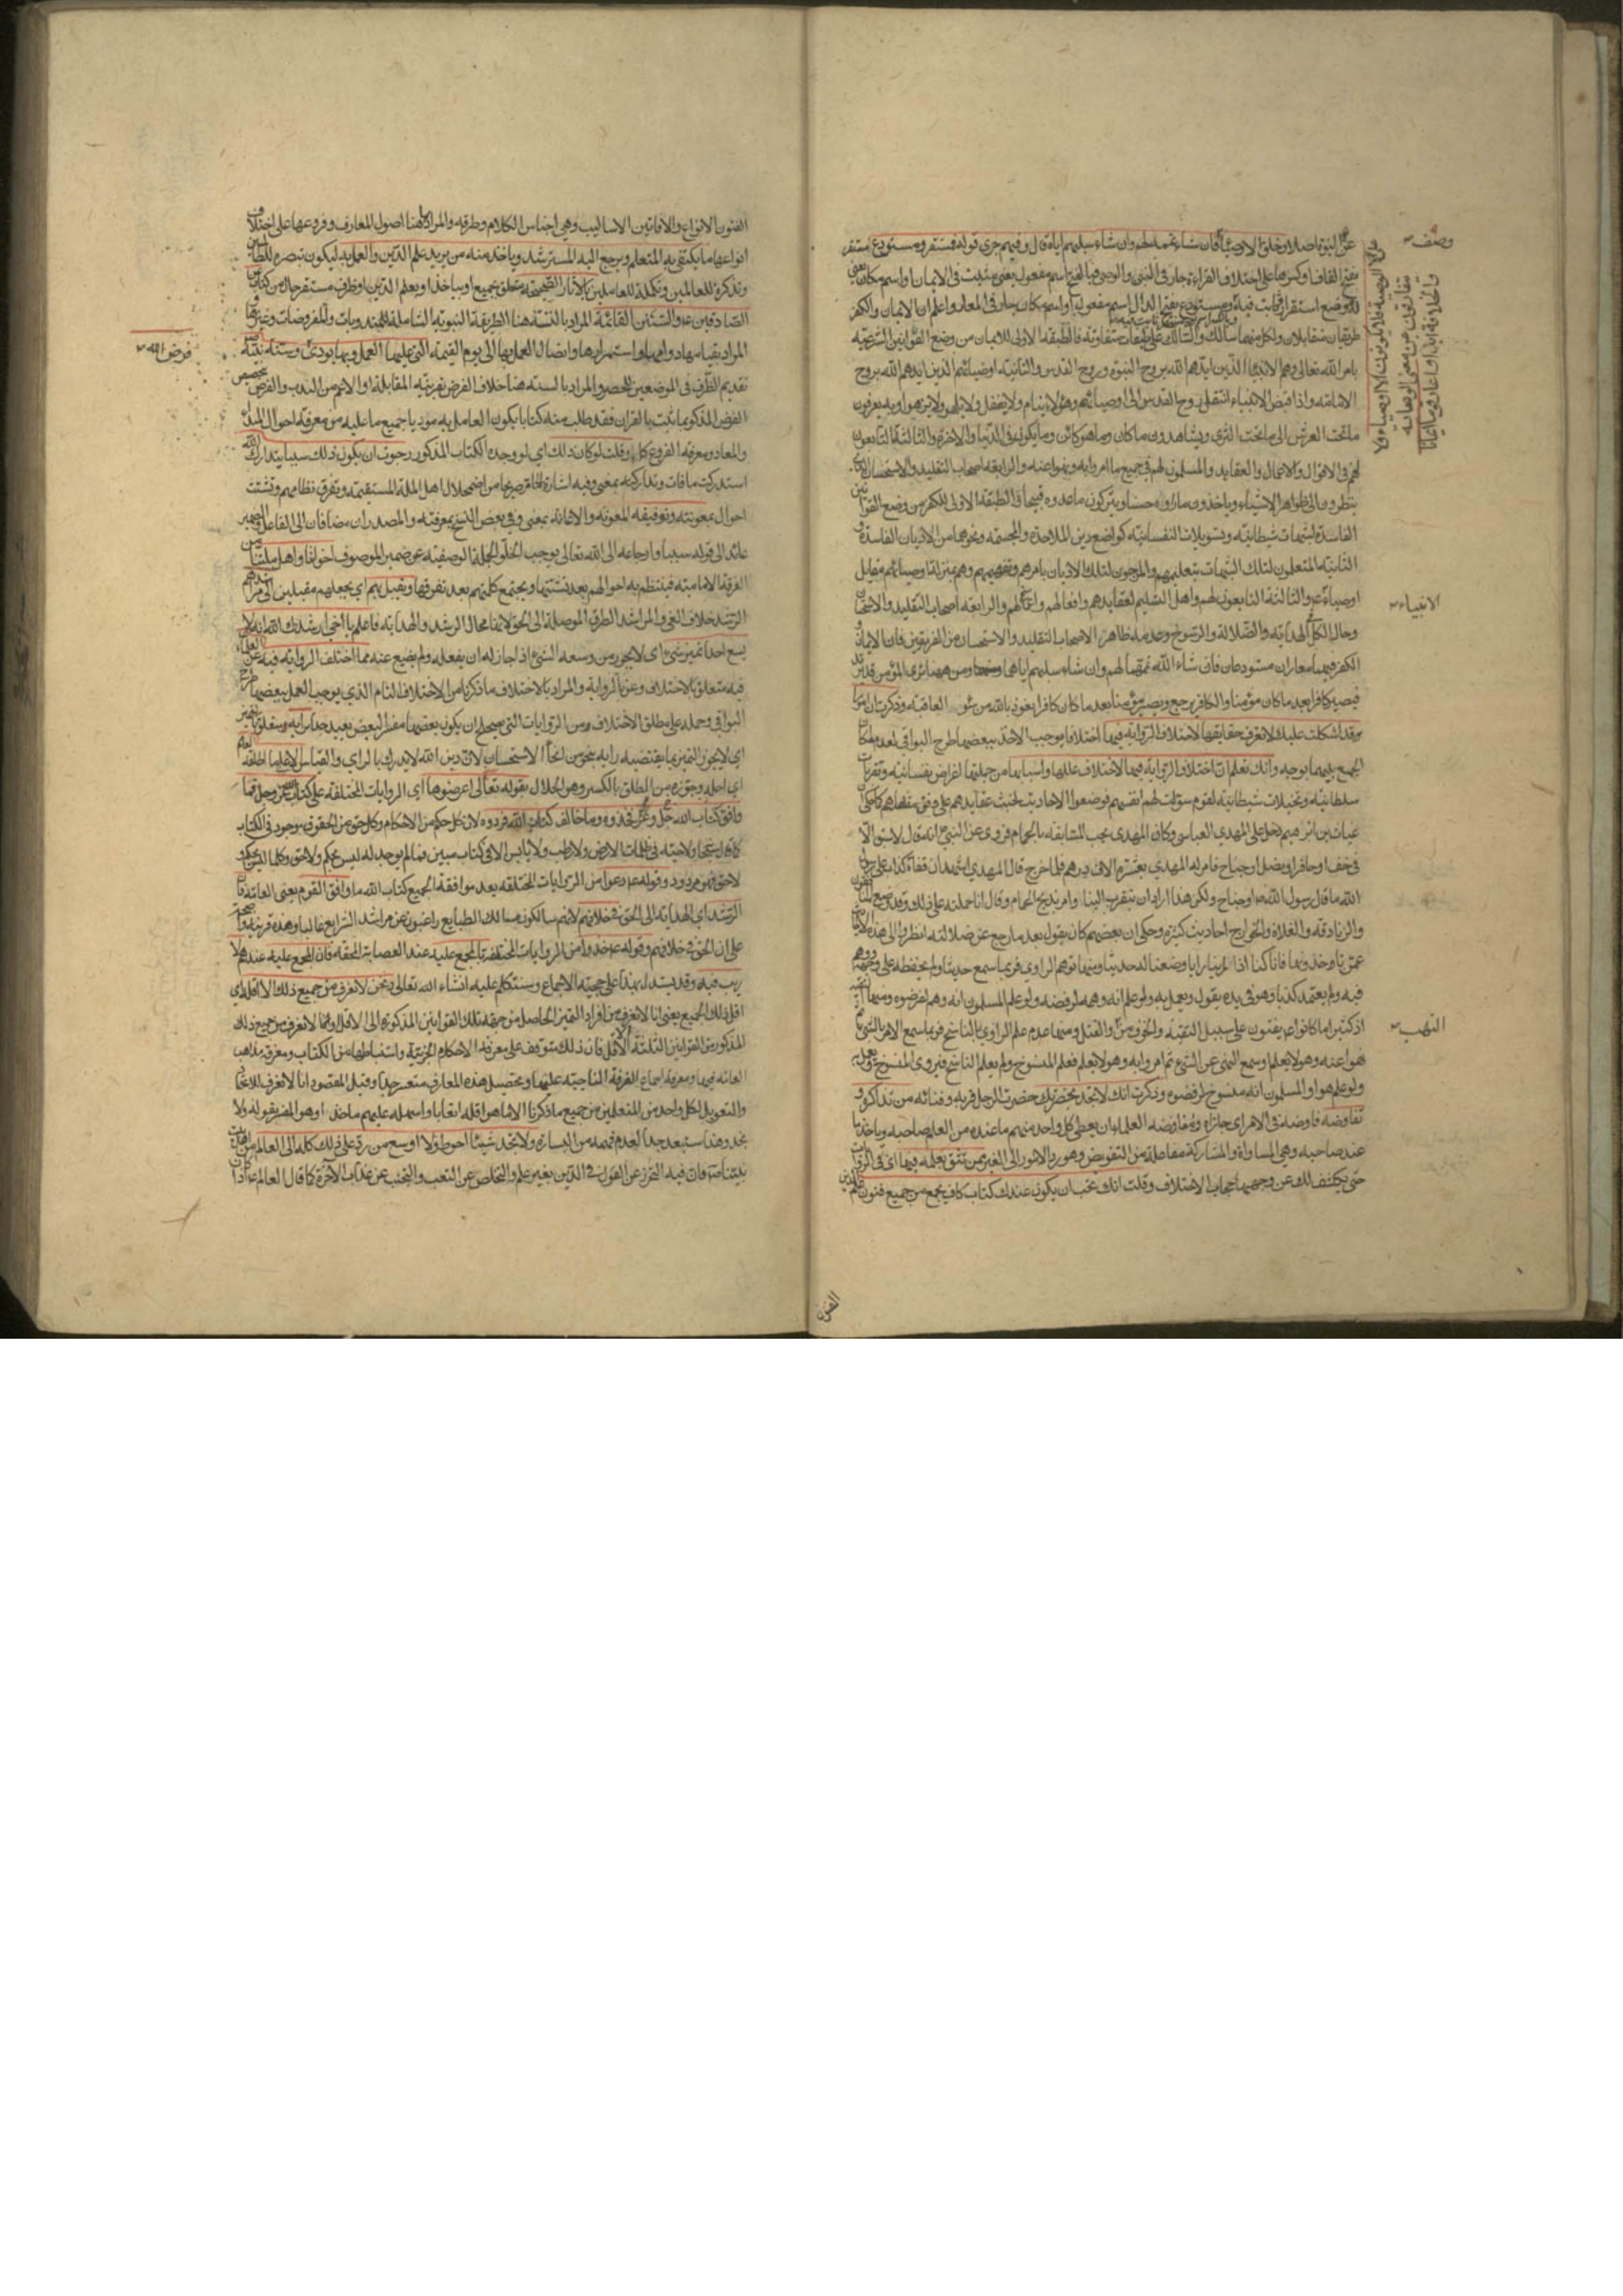 عن النبوة اصلا وخلق الاوصياء فان شاء تممه لهم وان شاء سلبهم اياه قال وفيهم جرى قوله فمستقر ومستودع مستقر
بفتح القاف وكسرها على اختلاف القراءة جار في النبي والوصي فبالفتح اسم مفعول يعني مثبت في الايمان او اسم مكان يعني
له موضع استقرار وثبات فيه ومستودع بفتح الدال اسم مفعول او اسم مكان جار في المعار واعلم ان الايمان والكفر
طريقان متقابلان ولكل منهما سالك والسالك على طبقات متفاوتة فالطبقة الاولى للايمان من وضع القوانين الشرعية
بامر الله تعالى وهم الانبياء الذين ايدهم الله بروح النبوة وروح القدس والثانية اوصيائهم الذين ايدهم الله بروح
الامامة واذا قبض الانبياء انتقل روح القدس الى اوصيائهم وهو لاينام ولايغفل ولايلهو ولايزهو وبه يعرفون
ماتحت العرش الى ماتحت الثرى ويشاهدون ماكان وماهو كائن ومايكون في الدنيا والاخرة والثالثة التابعون
لهم في الاقوال والاعمال والعقايد والمسلمون لهم في جميع ما امروا به ونهوا عنه والرابعة اصحاب التقليد والاستحسان الذين
ينظرون الى ظواهر الاشياء وياخذون مارأوه حسنا ويتركون ماعدوه قبيحا فالطبقة الاولى للكفر من وضع القوانين
الفاسدة لشبهات شيطانية وتسويلات النفسانية كواضع دين الملاحدة والمجسمة ونحوهما من الاديان الفاسدة و
الثانية المتعلمون لتلك الشبهات بتعليمهم والمروجون لتلك الاديان بامرهم وتفهيمهم وهم بمنزلة اوصيائهم مقابل
اوصياء والثالثة التابعون لهم واهل التسليم لعقايدهم وافعالهم واعمالهم والرابعة اصحاب التقليد والاستحسان
وحال الكل في الهداية والضلالة والرسوخ وعدمه ظاهر الا اصحاب التقليد والاستحسان من الفريقين فان الايمان و
الكفر فيهما معاران مستودعان فان شاء الله تممهما لهم وان شاء سلبهم اياهما ومن ههنا ترى المؤمن قد يرتد
فيصير كافرا بعد ماكان مؤمنا والكافر يرجع ويصير مؤمنا بعد ماكان كافرا نعوذ بالله من سوء العاقبة وذكرت ان امورا
قد اشكلت عليك لاتعرف حقايقها لاختلاف الرواية فيها اختلافا يوجب الاخذ ببعضها طرح البواقي لعدم امكان
الجمع بينهما بوجه وانك تعلم ان اختلاف الرواية فيها لاختلاف عللها واسبابها من جملتها اغراض نفسانية وتقربات
سلطانية وتخيلات شيطانية لقوم سولت لهم انفسهم فوضعوا الاحاديث لخبث عقايدهم على وفق سفههم كما حكي ان
غياث بن ابرهيم دخل على المهدي العباسي وكان المهدي يحب المسابقة بالحمام فروى عن النبي انه قال لاسبق الا
في خف او حافر او نصل او جناح فامر له المهدي بعشرة الاف درهم فلما خرج قال المهدي اشهد ان قفاه كذاب على رسول
الله ماقال رسول الله ص اوجناح ولكن هذا اراد ان يتقرب الينا وامر بذبح الحمام وقال انا حملته على ذلك وقد وضع المنافقون
والزنادقة والغلاة والخوارج احاديث كثيرة وحكي ان بعضهم كان يقول بعد مارجع عن ضلالته انظروا الى هذه الاحاديث
عمن تاخذونها فانا كنا اذا راينا رايا وضعنا له حديثا ومنها توهم الراوي فربما سمع حديثا ولم يحفظه على وجهه ووهم
فيه ولم يتعمد كذبا وهو في يده يقول ويعمل به ولو علم انه وهمه لرفضه ولو علم المسلمون انه وهم لرفضوه ومنها التقية
اذ كثيرا ما كانوا يفتون على سبيل التقية والخوف من والقتل ومنها عدم علم الراوي بالناسخ فربما سمع الامر بالشيء ثم
نهوا عنه وهو لايعلم او سمع النهي عن الشيء ثم امروا به وهو لايعلم فعلم المنسوخ ولم يعلم الناسخ فيروى المنسوخ ويعمل به
ولو علم هو او المسلمون انه منسوخ لرفضوه وذكرت انك لاتجد بحضرتك حضرت الرجل قربه وفنائه من تذاكره و
تفاوضه فاوضه في الامر اي جاراه ومفاوضة العلماء ان يعطي كل واحد منهم ماعنده من العلم صاحبه وياخذ ما
عند صاحبه وهي المساواة والمشاركة مفاعلة من التفويض وهو رد الامور الى الغير ممن تثق بعلمه فيها اي في الروايات
حتى يكشف لك عن وجهها حجاب الاختلاف وقلت انك تحب ان يكون عندك كتاب كاف يجمع من جميع فنون علم الدين
وصف
الانبياء
النهب
الفنون
الفنون الانواع والافانين الاساليب وهي اجناس الكلام وطرقه والمراد بها هنا اصول المعارف وفروعها على اختلاف
انواعها مايكتفي به المتعلم ويرجع اليه المسترشد وياخذ منه من يريد علم الدين والعمل به ليكون تبصرة للطالبين
وتذكرة للعالمين وتكملة للعاملين بالاثار الصحيحة متعلق بجميع او بياخذ او بعلم الدين او ظرف مستقر حال من كتاب عن
الصادقين ع والسنن القائمة المراد بالسنة هنا الطريقة النبوية الشاملة للمندوبات والمفروضات وغيرها
المراد بقيامها دوامها واستمرارها واتصال العمل بها الى يوم القيمة التي عليها العمل وبها يودى وسنة نبيه
تقديم الظرف في الموضعين للحصر والمراد بالسنة هنا خلاف الفرض بقرينة المقابلة او الاعم من الندب والفرض تخصيص
الفرض المذكور بماثبت بالقران فقد طلب منه كتابا يكون العامل به موديا جميع ماعليه من معرفة احوال المبدأ
والمعاد ومعرفة الفروع كلها وقلت لو كان ذلك اي لو وجد الكتاب المذكور رجوت ان يكون ذلك سببا يتدارك الله
استدركت مافات وتداركته بمعنى وفيه اشارة الى من اضمحلال اهل الملة المستقيمة وتفرق نظامهم وتشتت
احوال بمعونته وتوفيقه المعونة والاعانة بمعنى وفي بعض النسخ بمعرفته والمصدران مضافان الى الفاعل والضمير
عائد الى قوله سببا وارجاعه الى الله تعالى يوجب الخلو الجملة الوصفية عن ضمير الموصوف اخواننا واهل ملتنا من
الفرقة الامامية فينتظم به احوالهم بعد تشتتها ويجتمع كلمتهم بعد تفرقها ويقبل بهم اي يجعلهم مقبلين الى مراشدهم
الرشد خلاف الغي والمراشد الطرق الموصلة الى الحق لانها محال الرشد والهداية فاعلم يا اخي ارشدك الله انه لا
يسع احدا تميز شيء اي لايجوز من وسعه الشيء اذا جاز له ان يفعله ولم يضيع عنه مما اختلف الرواية فيه عن العلماء
فيه متعلق بالاختلاف وعن بالرواية والمراد بالاختلاف ماذكرنا من الاختلاف التام الذي يوجب العمل ببعضها طرح
البواقي وحمله على مطلق الاختلاف ومن الروايات التي يصلح ان يكون بعضها مفسرا لبعض بعيد جدا برايه متعلق بتميز
اي لايجوز التميز بما يقتضيه رايه بنحو من انحاء الاستحسان لان دين الله لايدرك بالراي والقياس الا على ما اطلقه العالم
اي احله وجوزه من الطلق بالكسر وهو الحلال بقوله تعالى اعرضوها اي الروايات المختلفة على كتاب الله عز وجل فما
وافق كتاب الله جل وعز فخذوه وماخالف كتاب الله فردوه لان كل حكم من الاحكام وكل حق من الحقوق موجود في الكتاب
كما قال سبحانه ولاحبة في ظلمات الارض ولارطب ولايابس الا في كتاب مبين فمالم يوجد له ليس بحكم ولاحق وكلما ليس بحكم و
لاحق فهو مردود وقوله ع دعوا من الروايات المختلفة بعد موافقة الجميع كتاب الله ماوافق القوم يعني العامة فان
الرشد اي الهداية الى الحق في خلافهم لانهم سالكون مسالك الطبايع راغبون عن مراشد الشرايع غالبا وهذه قرينة واضحة
على ان الحق في خلافهم وقوله ع خذوا من الروايات المختلفة بالمجمع عليه عند العصابة المحقة فان المجمع عليه عندهم لا
ريب فيه وقد يستدل بهذا على حجية الاجماع وسنتكلم عليه انشاء الله تعالى ونحن لانعرف من جميع ذلك الا اقله اي
اقل ذلك الجميع يعني انا لانعرف من افراد التميز الحاصل من جهة تلك القوانين المذكورة الا الاقل او مما لانعرف من جميع ذلك
المذكور من القوانين الثلثة الا الاقل فان ذلك متوقف على معرفة الاحكام الجزئية واستنباطها من الكتاب ومعرفة مذاهب
العامة فيها ومعرفة اجماع الفرقة الناجية عليها وتحصيل هذه المعارف متعسر جدا وقيل المقصود انا لانعرف للاعتماد
والتعويل لكل واحد من المتعلمين من جميع ماذكرنا الا ماهو اقله اتعابا واسهله عليهم ماخذا وهو المفسر بقوله ولا
نجد وهذا مستبعد جدا لعدم فهمه من العبارة ولانجد شيئا احوط ولا اوسع من رد علم ذلك كله الى العالم من اهل بيت
نبينا ص فان فيه التحرز عن القول في الدين بغير علم والتخلص عن التعب والتجنب عن عذاب الآخرة كما قال العالم ع اذا كان
فرض الله